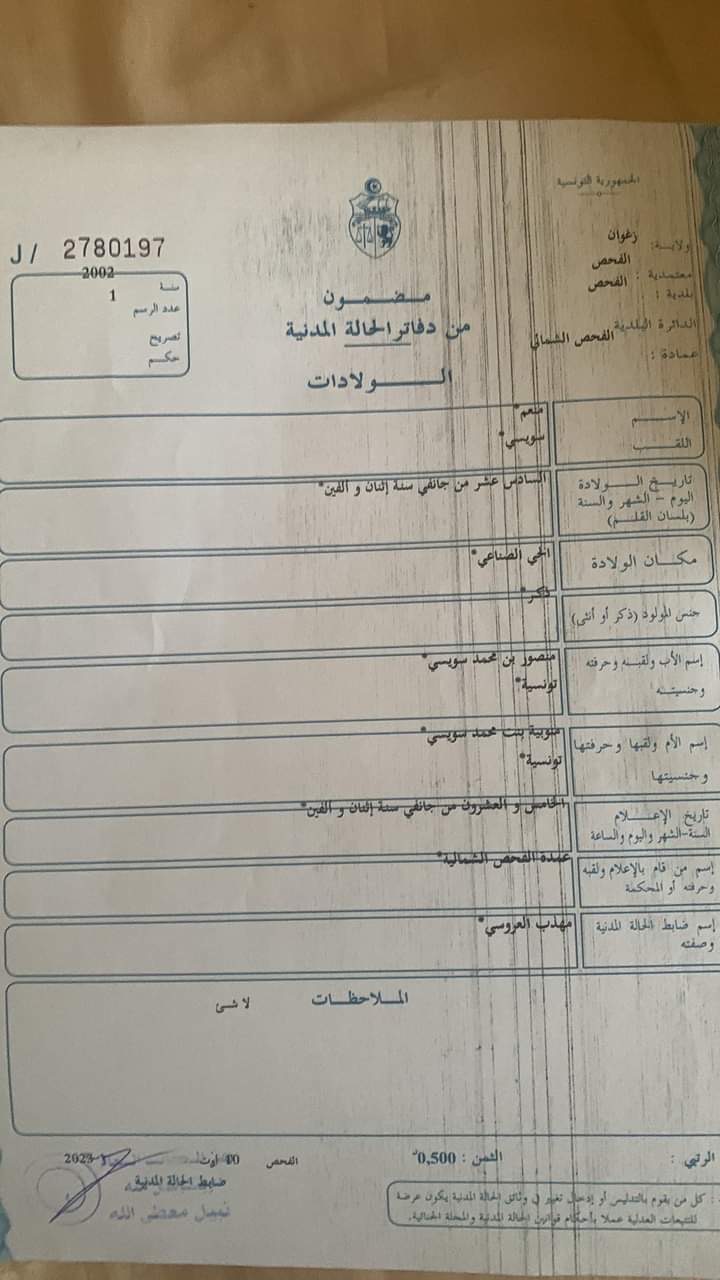 الجمهورية التونسية
ولاية: زغوان
معتمدية: الفحص
بلدية: الفحص
الدائرة البلدية الفحص الشمالي
عمادة:
J/ 2780197
سنة 2002
عدد الرسم 1
تصريح
حكم
مضمون
من دفاتر الحالة المدنية
الولادات
الإسم منعم*
اللقب سويسي*
تاريخ الولادة
اليوم - الشهر والسنة
(بلسان القلم)
السادس عشر من جانفي سنة إثنان و ألفين*
مكان الولادة الحي الصناعي*
جنس المولود (ذكر أو أنثى) ذكر*
إسم الأب ولقبه وحرفته منصور بن محمد سويسي*
وجنسيته تونسية*
إسم الأم ولقبها وحرفتها منوبية بنت محمد سويسي*
وجنسيتها تونسية*
تاريخ الإعلام
السنة-الشهر واليوم والساعة
الخامس و العشرون من جانفي سنة إثنان و ألفين*
إسم من قام بالإعلام ولقبه
وحرفته أو المحكمة
عمدة الفحص الشمالية*
إسم ضابط الحالة المدنية
وصفته
مهذب العروسي*
الملاحظات
لا شئ
الثمن : 0,500
الفحص 10 أوت 2023
ضابط الحالة المدنية
نبيل معطى الله
كل من يقوم بالتدليس أو إدخال تغيير في وثائق الحالة المدنية يكون عرضة
للتتبعات العدلية عملا بأحكام قوانين الحالة المدنية والمجلة الجنائية.